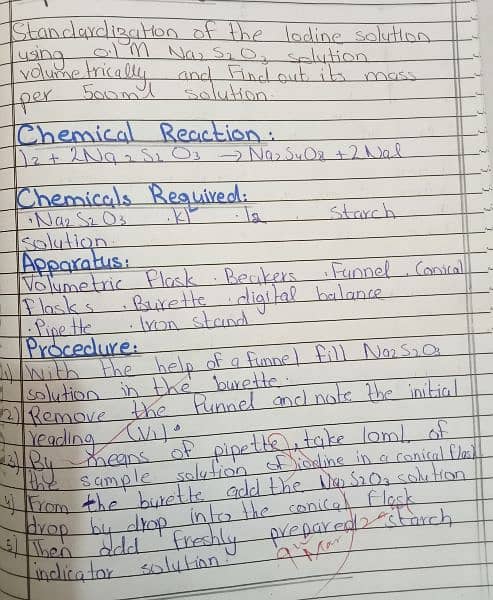 Standardization of the Iodine solution
using 0.1 M Na2 S2 O3 solution
volumetrically and Find out its mass
per 500ml solution.
Chemical Reaction:
I2 + 2Na2 S2 O3 → Na2 S4 O8 + 2NaI
Chemicals Required:
. Na2 S2 O3 . KI . I2 Starch
solution.
Apparatus:
Volumetric Flask . Beakers . Funnel . Conical
Flasks . Burette . digital balance
. Pipette . Iron stand
Procedure:
1) With the help of a funnel fill Na2S2O3
solution in the burette.
2) Remove the Funnel and note the initial
reading (V1).
3) By means of pipette, take 10mL of
the sample solution of iodine in a conical flask
4) From the burette add the Na2S2O3 solution
drop by drop into the conical flask
5) Then add freshly prepared starch
indicator solution.